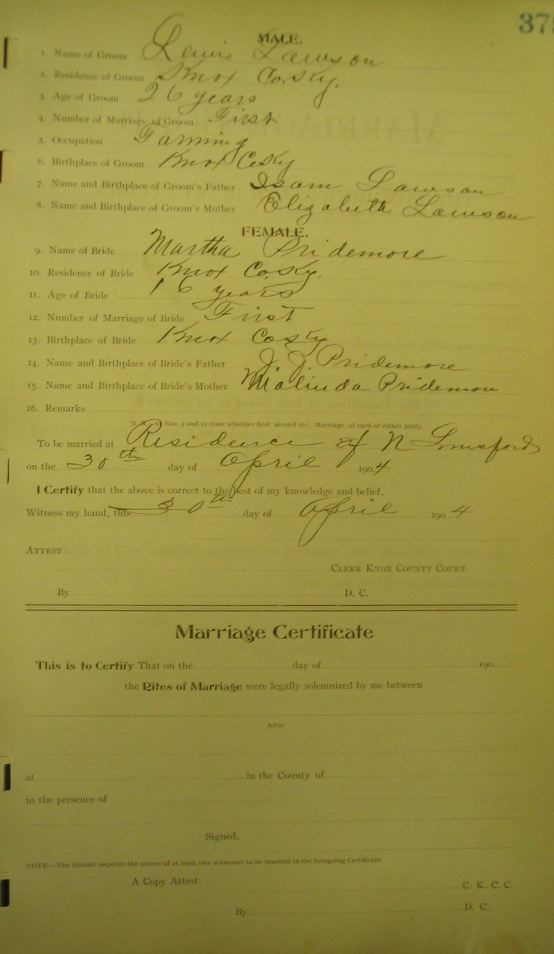 37
MALE.
1. Name of Groom Lewis Lawson
2. Residence of Groom Knox Co. Ky.
3. Age of Groom 26 years
4. Number of Marriage of Groom First
5. Occupation Farming
6. Birthplace of Groom Knox Co Ky
7. Name and Birthplace of Groom's Father Isam Lawson
8. Name and Birthplace of Groom's Mother Elizabeth Lawson
FEMALE.
9. Name of Bride Martha Pridemore
10. Residence of Bride Knox Co. Ky.
11. Age of Bride 16 years
12. Number of Marriage of Bride First
13. Birthplace of Bride Knox Co Ky
14. Name and Birthplace of Bride's Father J. J. Pridemore
15. Name and Birthplace of Bride's Mother Malinda Pridemore
16. Remarks
Nos. 4 and 12 state whether first, second etc., Marriage, of each or either party.
To be married at Residence of N
on the 30th day of April 1904
I Certify that the above is correct to the best of my knowledge and belief.
Witness my hand, this 30th day of April 190 4
ATTEST:
CLERK KNOX COUNTY COURT.
By D. C.
Marriage Certificate
This is to Certify That on the day of 190
the Rites of Marriage were legally solemnized by me between
AND
at in the County of
in the presence of
Signed,
NOTE.—The Statute requires the names of at least two witnesses to be inserted in the foregoing Certificate.
A Copy Attest: C. K. C. C.
By D. C.